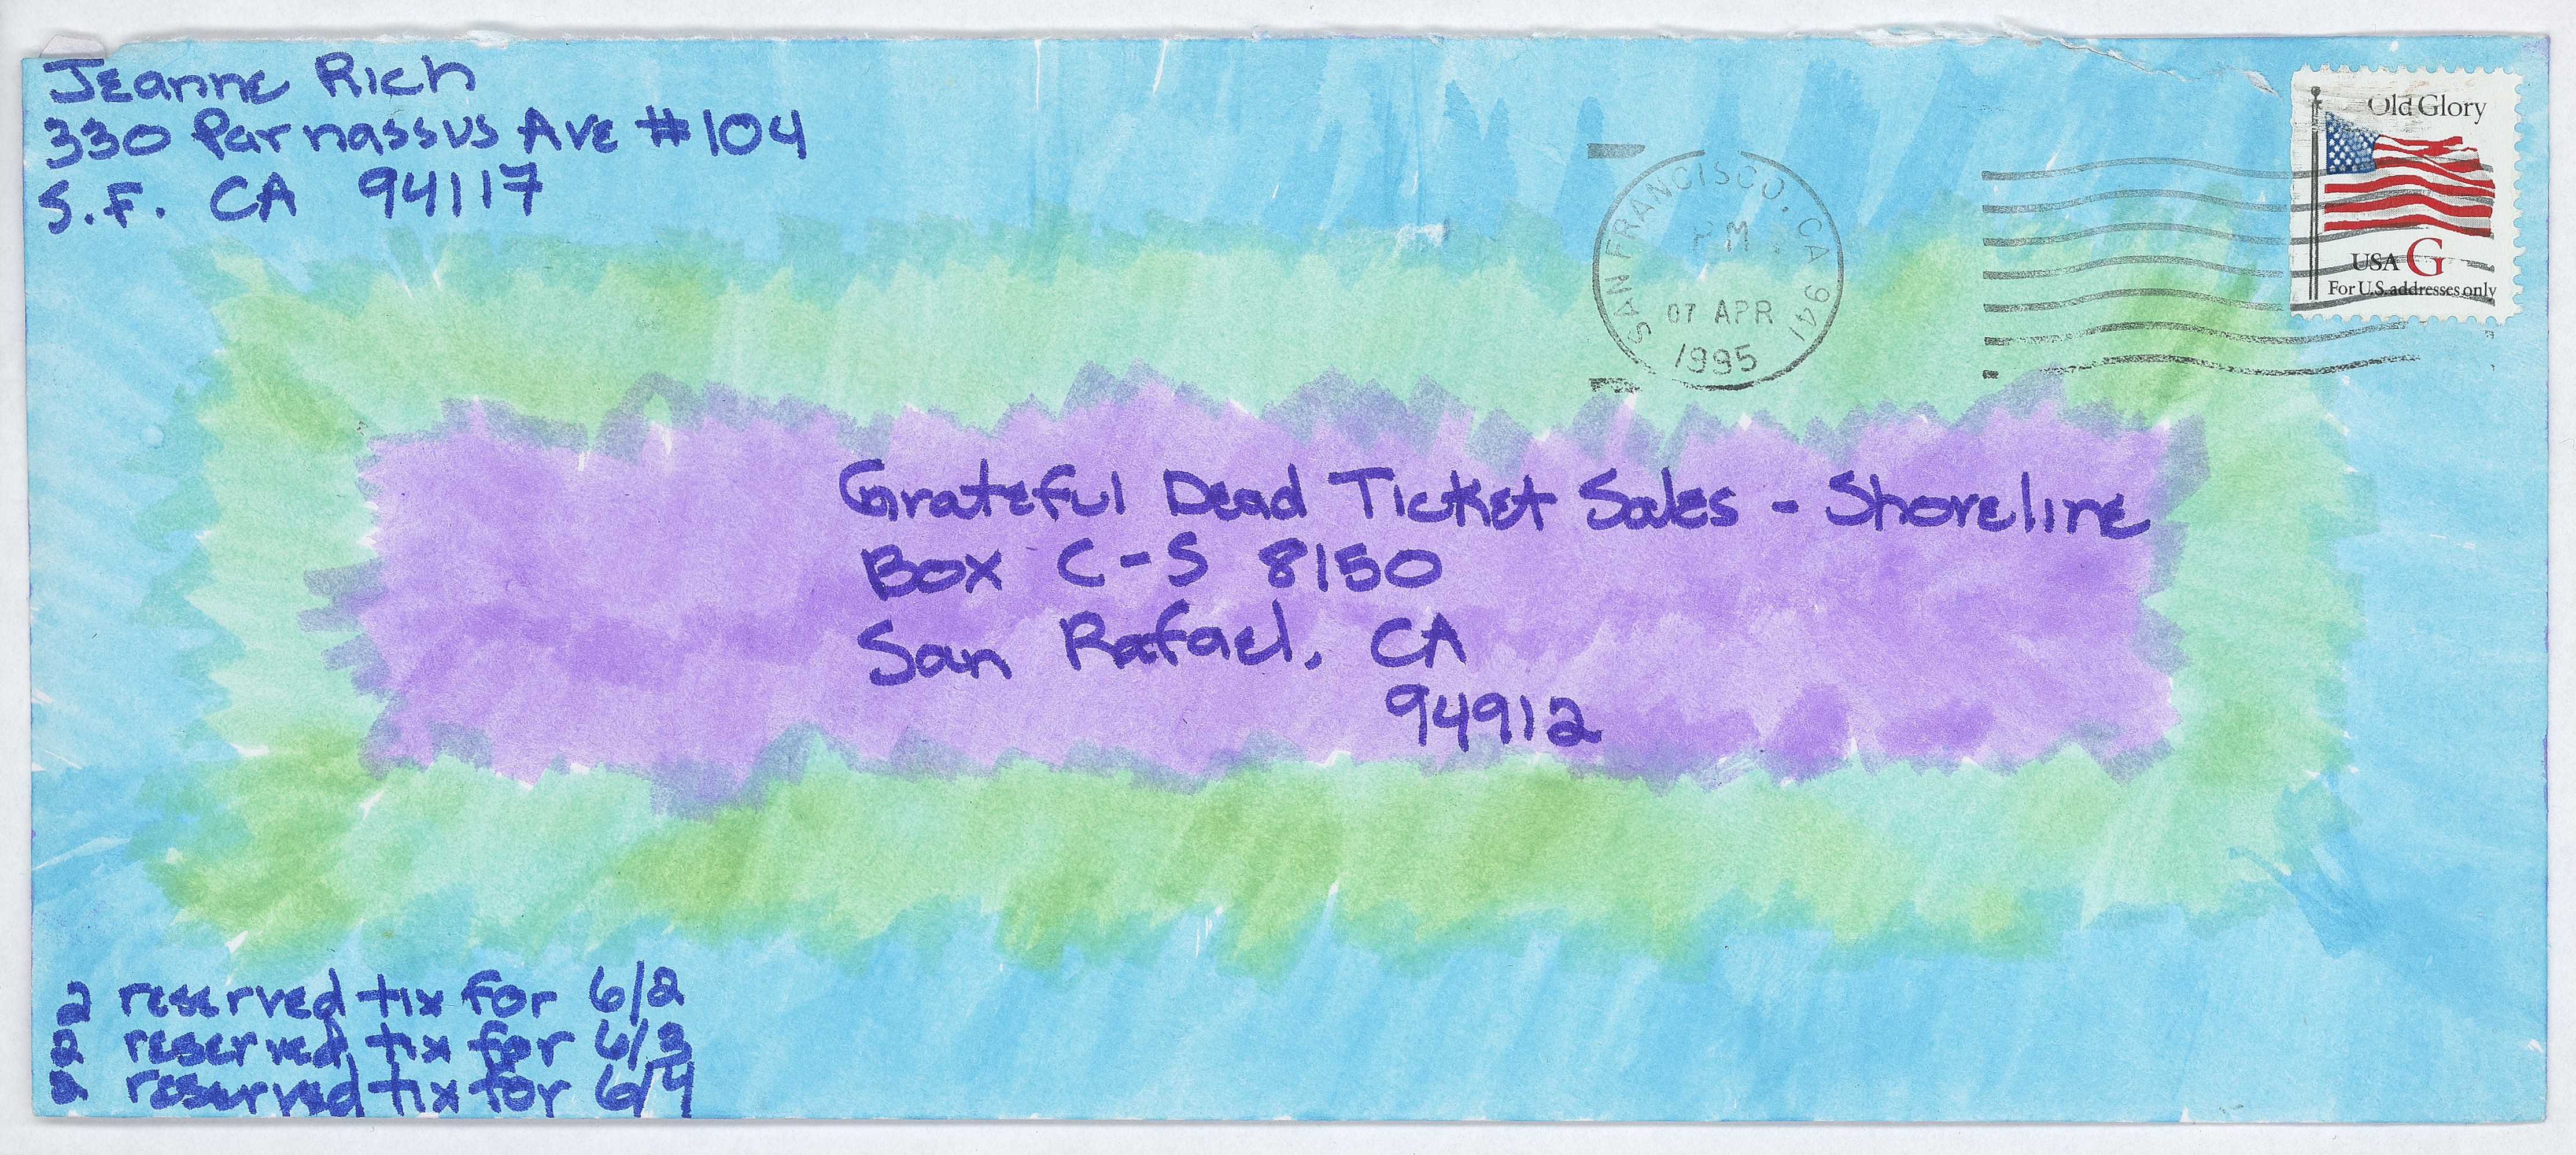 Jeanne Rich
330 Parnassus Ave #104
S.F. CA 94117
Old Glory
USA G
For U.S. addresses only
SAN FRANCISCO, CA 941
PM
07 APR
1995
Grateful Dead Ticket Sales - Shoreline
Box C-S 8150
San Rafael, CA
94912
2 reserved tix for 6/2
2 reserved tix for 6/3
2 reserved tix for 6/4